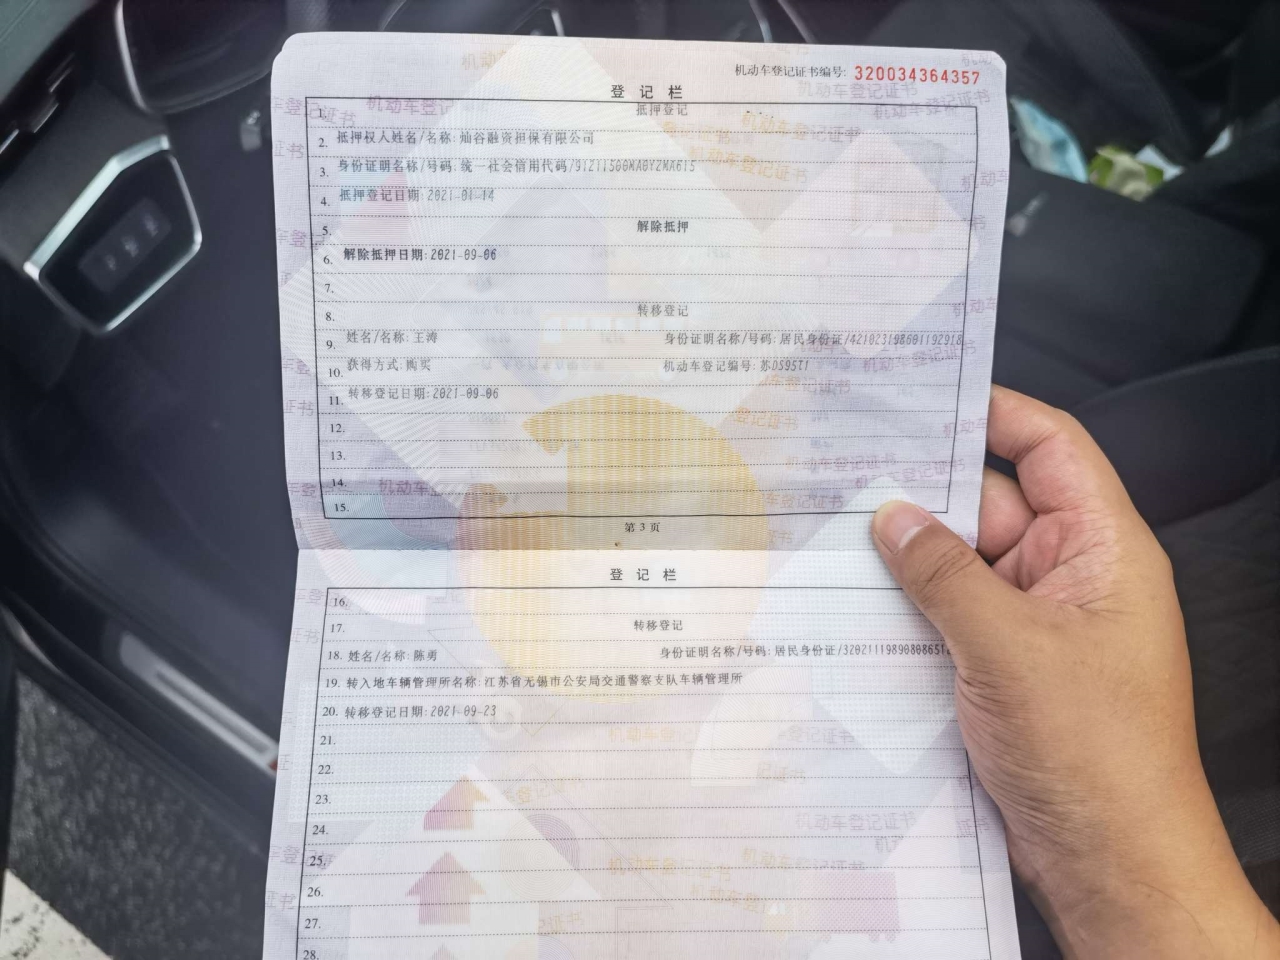 机动车登记证书编号: 320034364357
登 记 栏
1. 抵押登记
2. 抵押权人姓名/名称:灿谷融资担保有限公司
3. 身份证明名称/号码:统一社会信用代码/91211500MA0YZMA615
4. 抵押登记日期:2021-01-14
5. 解除抵押
6. 解除抵押日期:2021-09-06
7.
8. 转移登记
9. 姓名/名称:王涛 身份证明名称/号码:居民身份证/421023198601192918
10. 获得方式:购买 机动车登记编号:苏DS95T1
11. 转移登记日期:2021-09-06
12.
13.
14.
15.
第 3 页
登 记 栏
16.
17. 转移登记
18. 姓名/名称:陈勇 身份证明名称/号码:居民身份证/32021119890808651
19. 转入地车辆管理所名称:江苏省无锡市公安局交通警察支队车辆管理所
20. 转移登记日期:2021-09-23
21.
22.
23.
24.
25.
26.
27.
28.